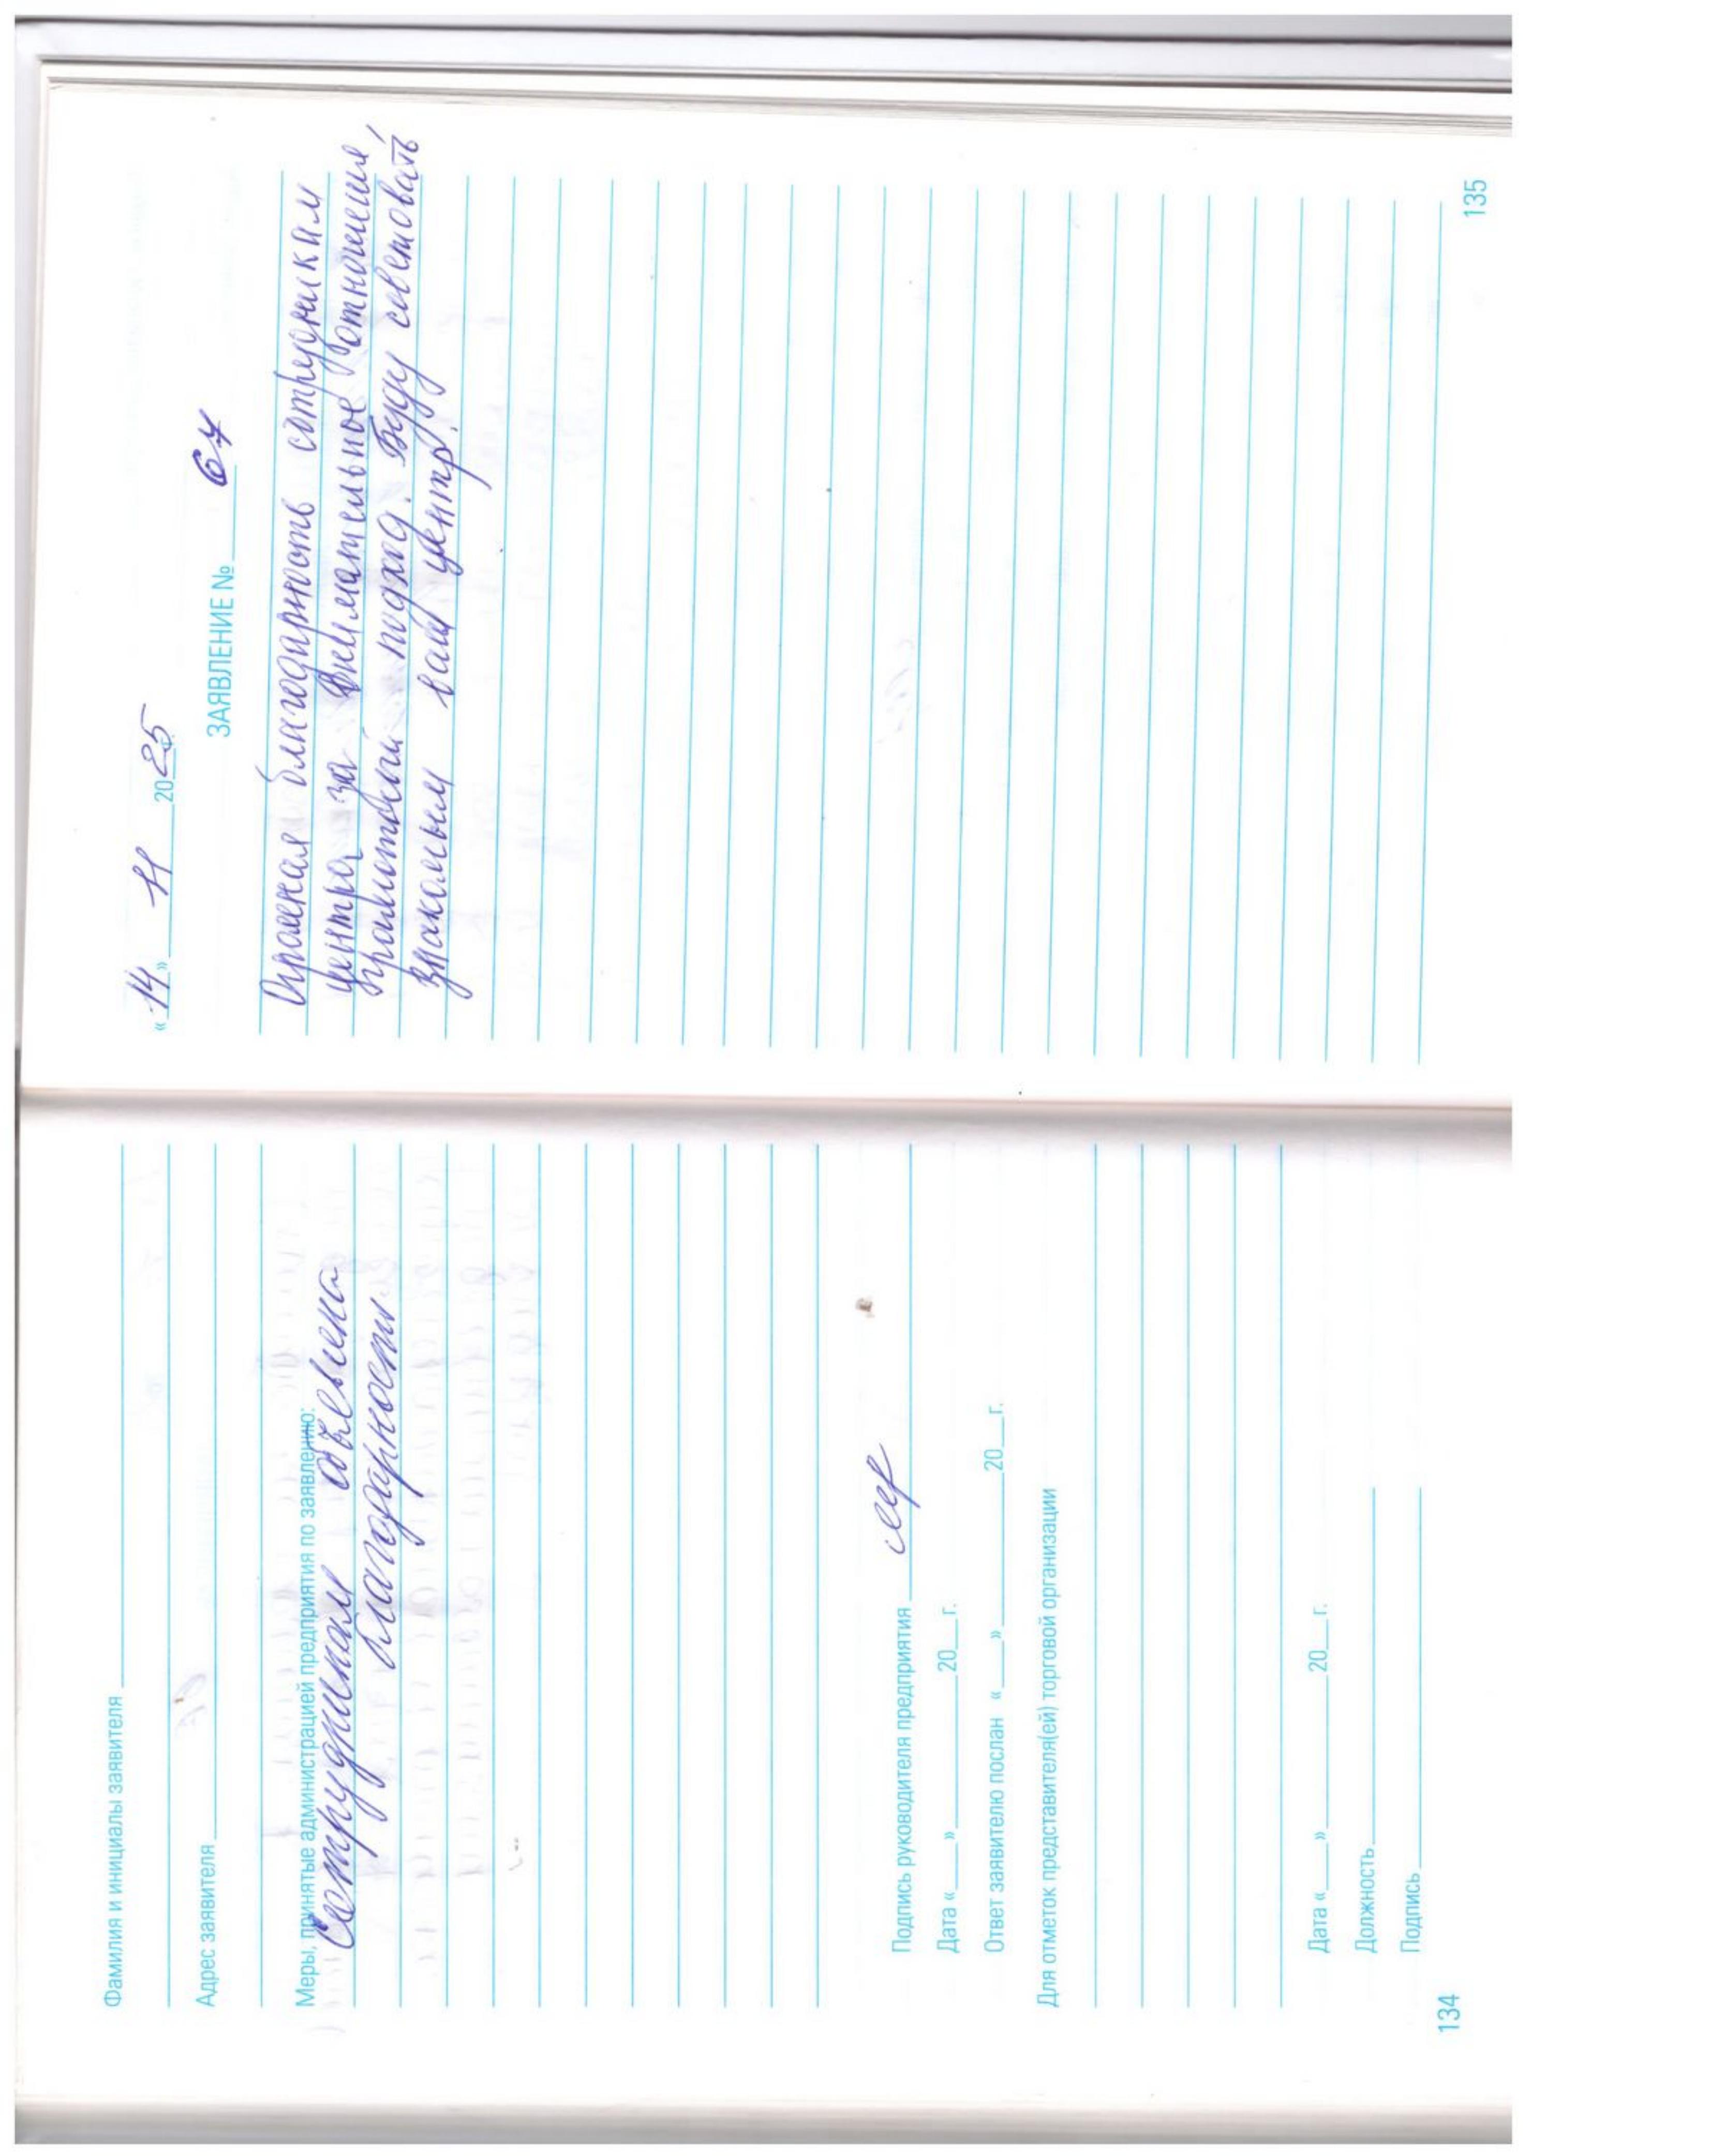 Фамилия и инициалы заявителя
Адрес заявителя
Меры, принятые администрацией предприятия по заявлению:
Сотрудникам объявлена
благодарность.
Подпись руководителя предприятия
Дата «____»__________20___г.
Ответ заявителю послан «____»__________20___г.
Для отметок представителя(ей) торговой организации
Дата «____»__________20___г.
Должность
Подпись
134
«14» 11 2025
ЗАЯВЛЕНИЕ № 67
Огромная благодарность сотрудникам
центра за внимательное отношение,
грамотный подход. Буду советовать
знакомым ваш центр!
135